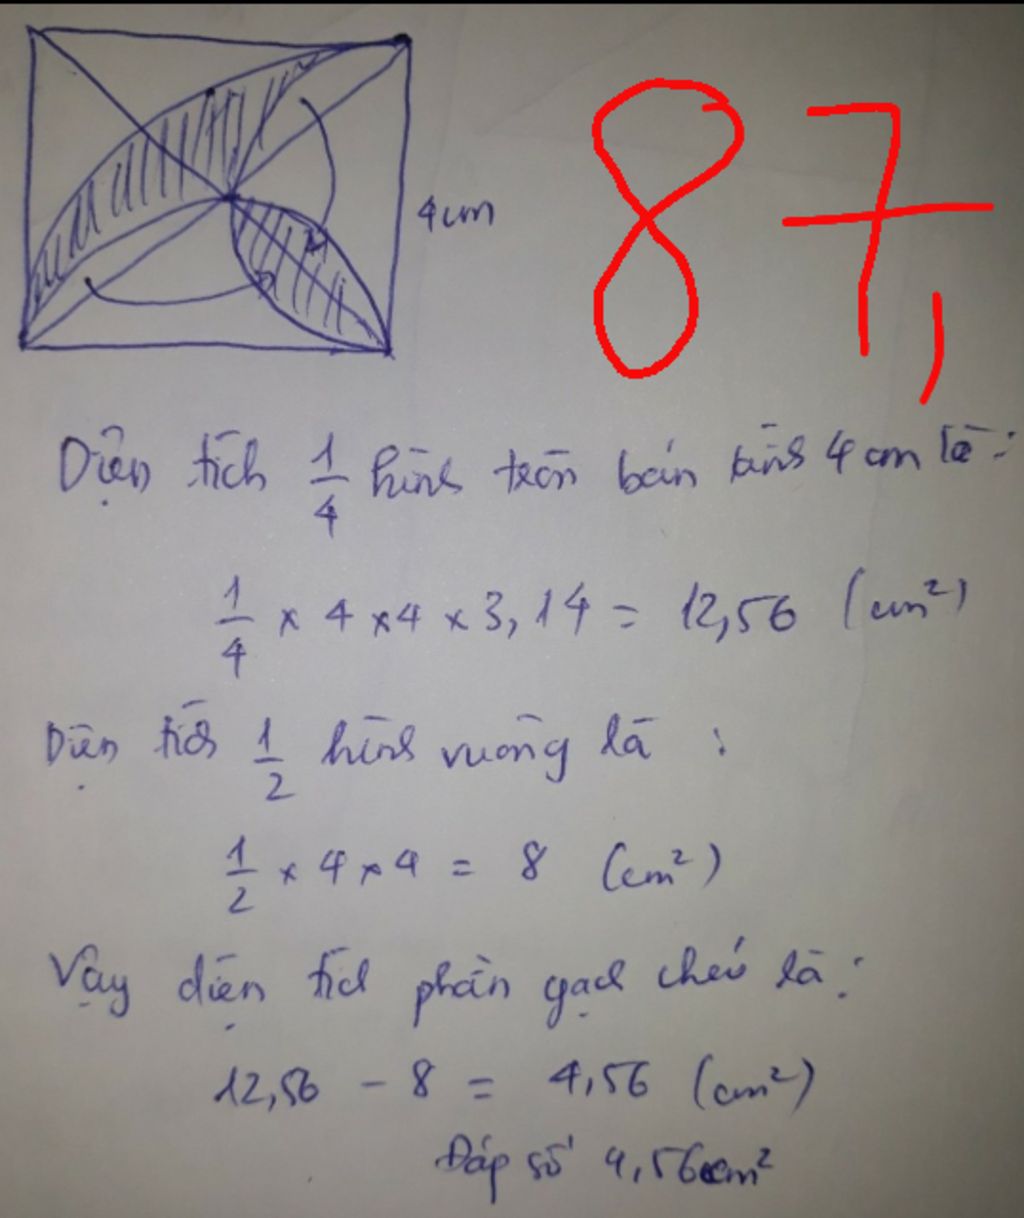 4cm
87,
Diện tích 1/4 hình tròn bán kính 4 cm là :
1/4 × 4 × 4 × 3,14 = 12,56 (cm²)
Diện tích 1/2 hình vuông là :
1/2 × 4 × 4 = 8 (cm²)
Vậy diện tích phần gạch chéo là :
12,56 - 8 = 4,56 (cm²)
Đáp số 4,56cm²